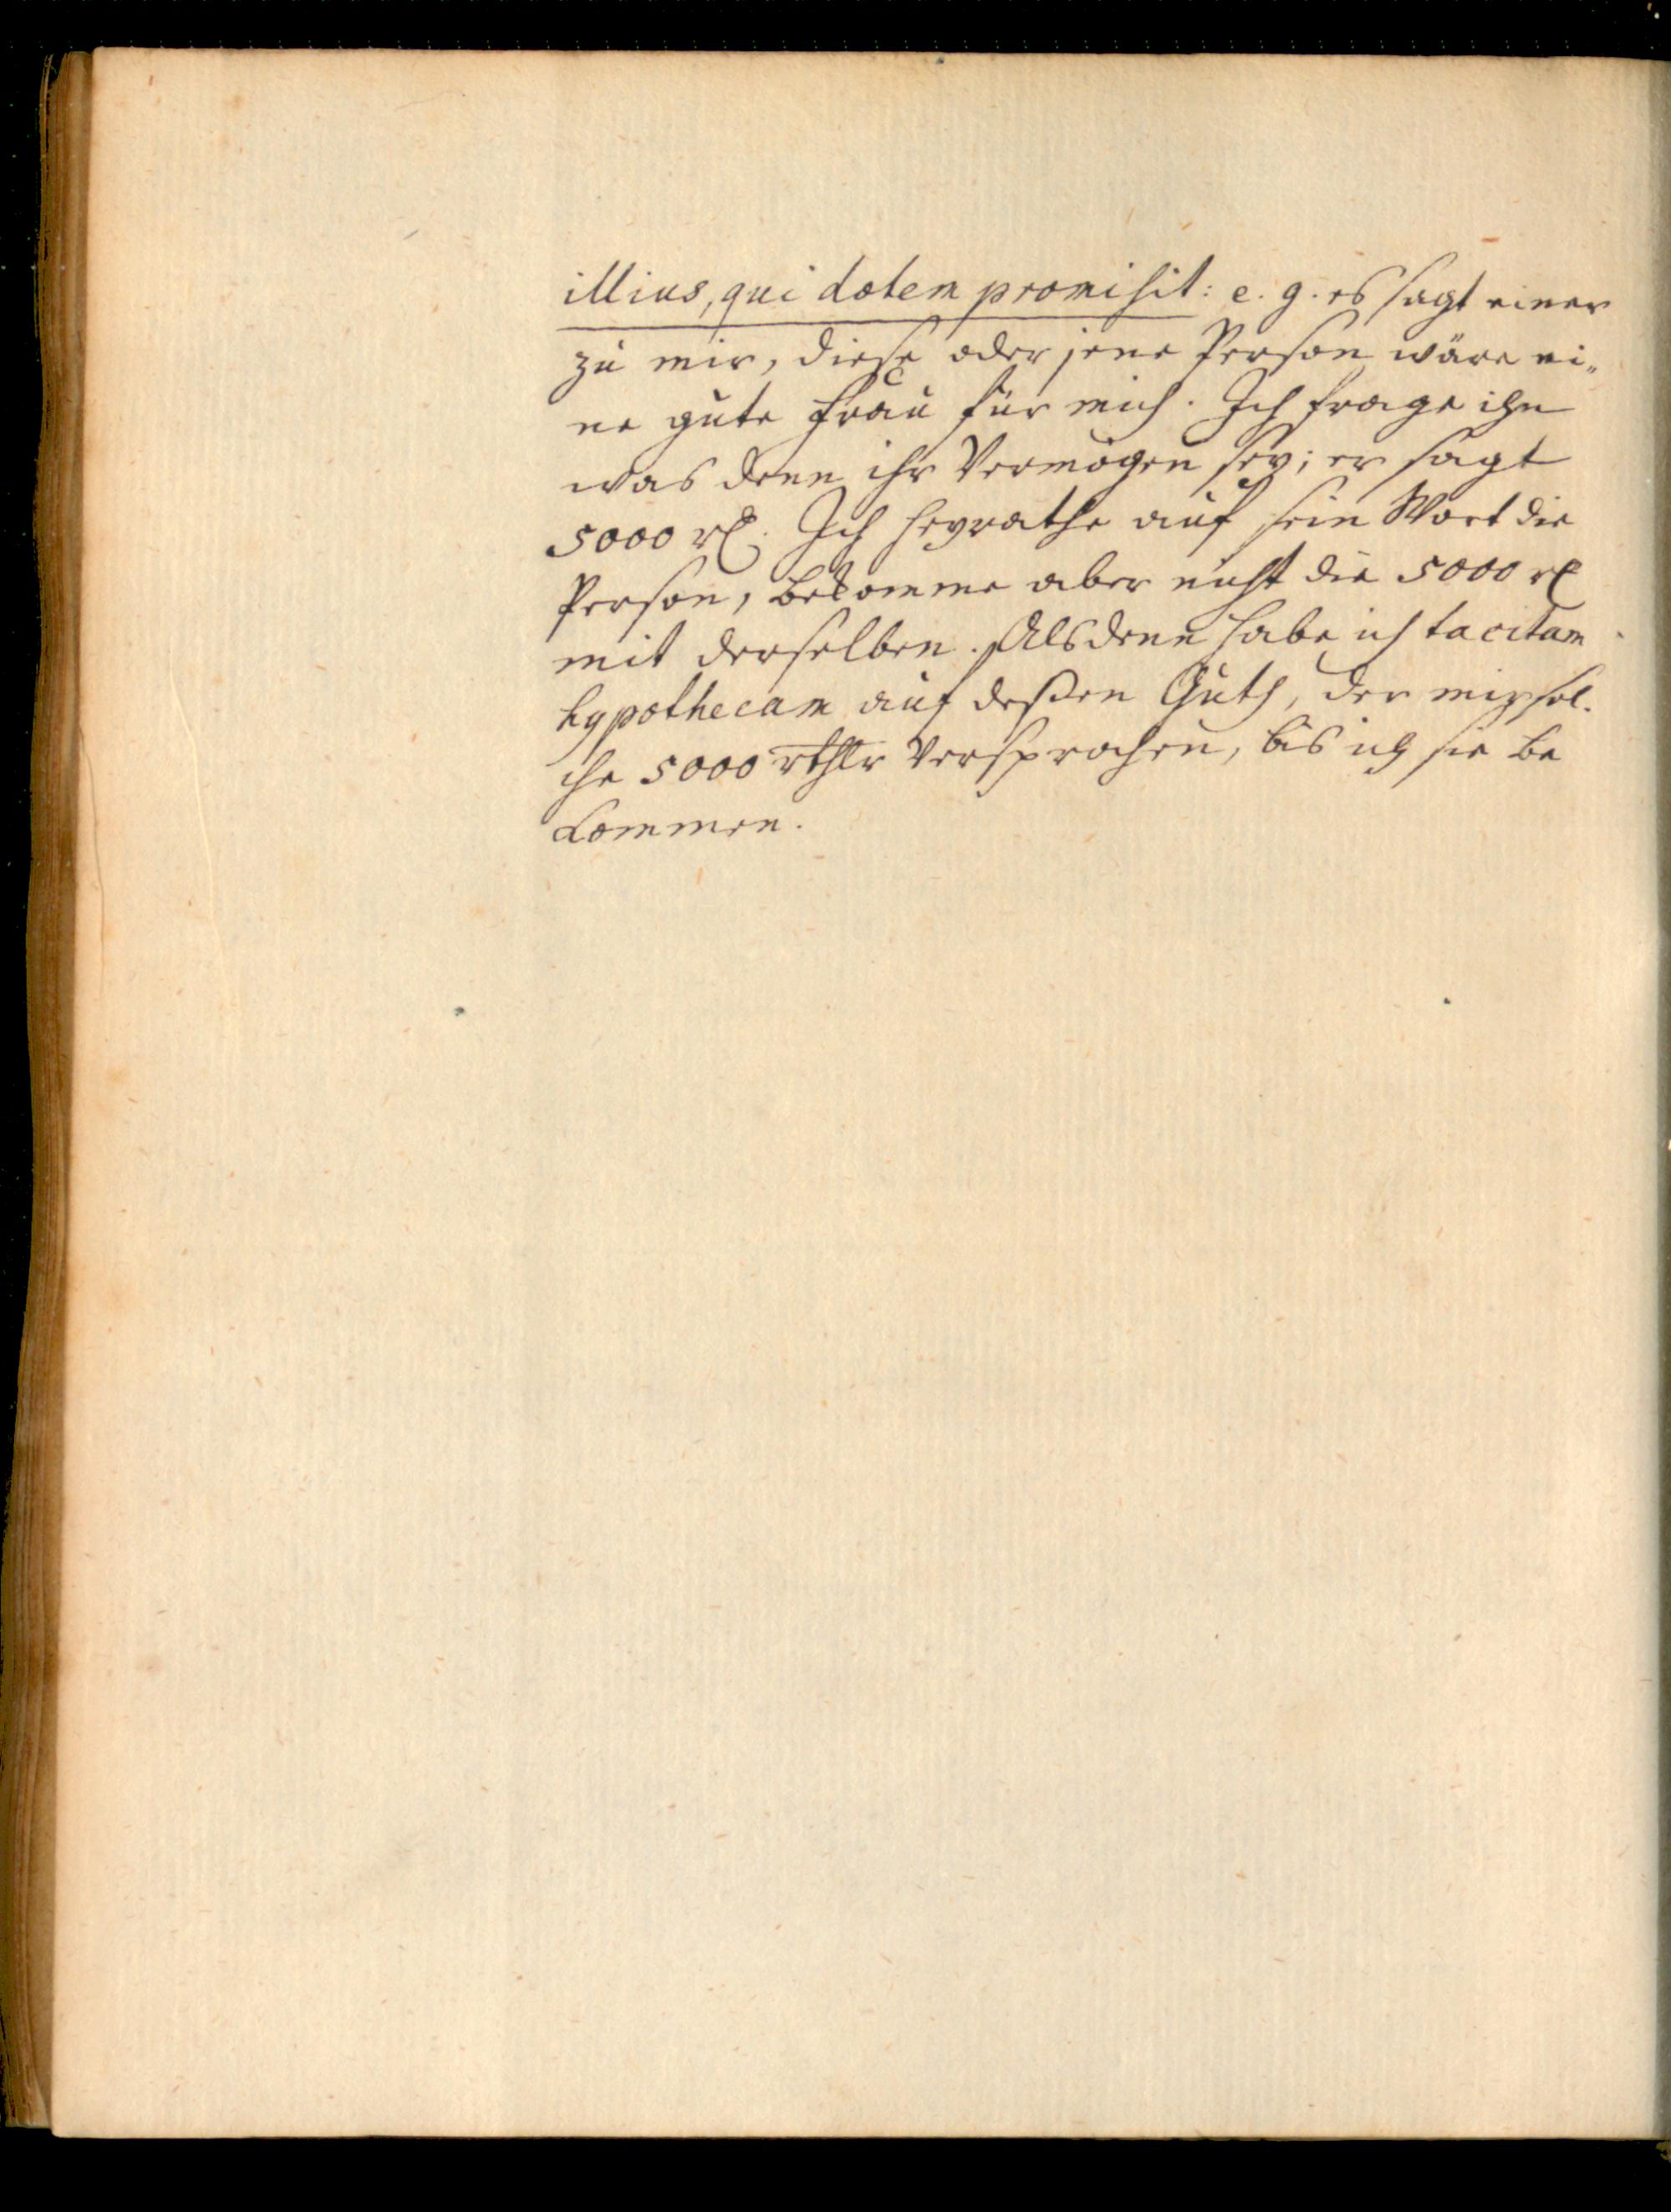 illius, qui dotem promisit: e. g. es sagt einer
zu mir, diese oder jene Person wäre ei„
ne gute Frau für mich. Ich frage ihn
was denn ihr Vermögen sey; er sagt
5000 rl. Ich heyrathe auf sein Wort die
Person, bekomme aber nicht die 5000 rl
mit derselben. Alsdenn habe ich tacitam
hypothecam auf deßen Guth, der mir sol-
che 5000 rthlr versprochen, bis ich sie be
kommen.